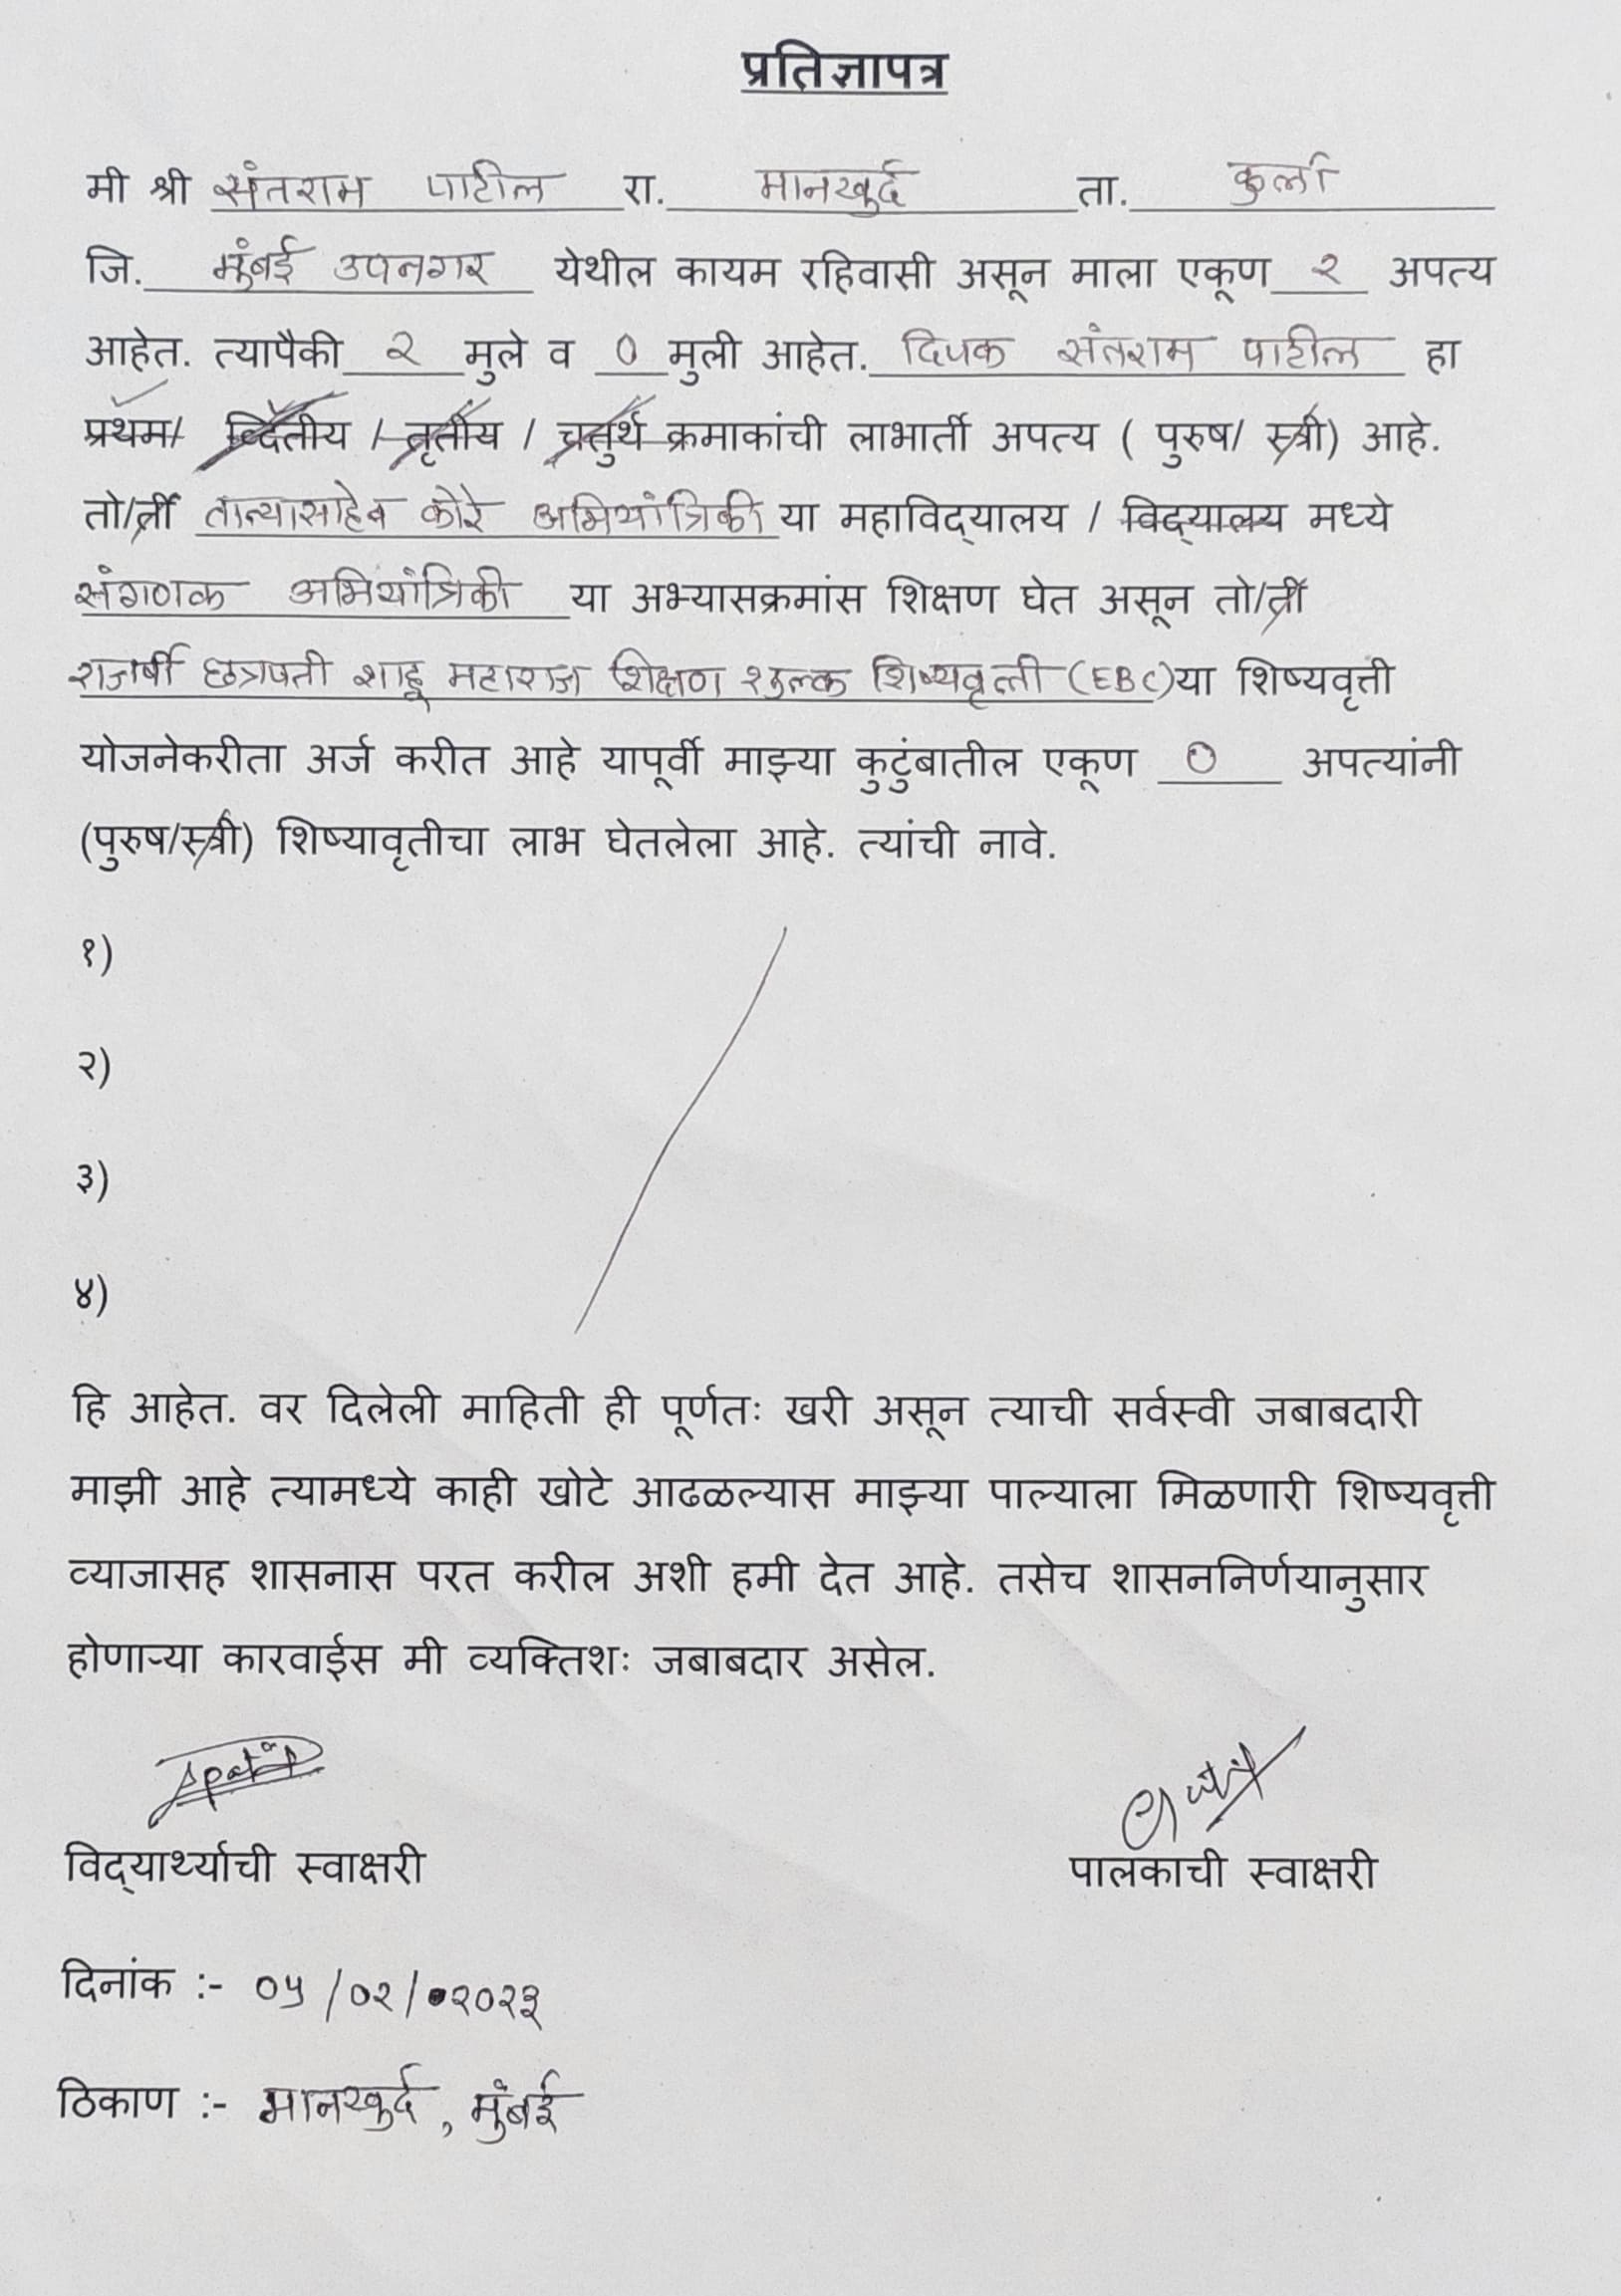 प्रतिज्ञापत्र
मी श्री संतराम पाटील रा. मानखुर्द ता. कुर्ला
जि. मुंबई उपनगर येथील कायम रहिवासी असून माला एकूण २ अपत्य
आहेत. त्यापैकी २ मुले व ० मुली आहेत. दिपक संतराम पाटील हा
प्रथम/ व्दितीय / तृतीय / चतुर्थ क्रमाकांची लाभार्ती अपत्य ( पुरुष/ स्त्री) आहे.
तो/ती तात्यासाहेब कोरे अभियांत्रिकी या महाविद्‌यालय / विद्‌यालय मध्ये
संगणक अभियांत्रिकी या अभ्यासक्रमांस शिक्षण घेत असून तो/ती
राजर्षी छत्रपती शाहू महाराज शिक्षण शुल्क शिष्यवृत्ती (EBC) या शिष्यवृत्ती
योजनेकरीता अर्ज करीत आहे यापूर्वी माझ्या कुटुंबातील एकूण ० अपत्यांनी
(पुरुष/स्त्री) शिष्यावृतीचा लाभ घेतलेला आहे. त्यांची नावे.
१)
२)
३)
४)
हि आहेत. वर दिलेली माहिती ही पूर्णतः खरी असून त्याची सर्वस्वी जबाबदारी
माझी आहे त्यामध्ये काही खोटे आढळल्यास माझ्या पाल्याला मिळणारी शिष्यवृत्ती
व्याजासह शासनास परत करील अशी हमी देत आहे. तसेच शासननिर्णयानुसार
होणाऱ्या कारवाईस मी व्यक्तिशः जबाबदार असेल.
विद्‌यार्थ्याची स्वाक्षरी पालकाची स्वाक्षरी
दिनांक :- ०५/०२/२०२३
ठिकाण :- मानखुर्द, मुंबई